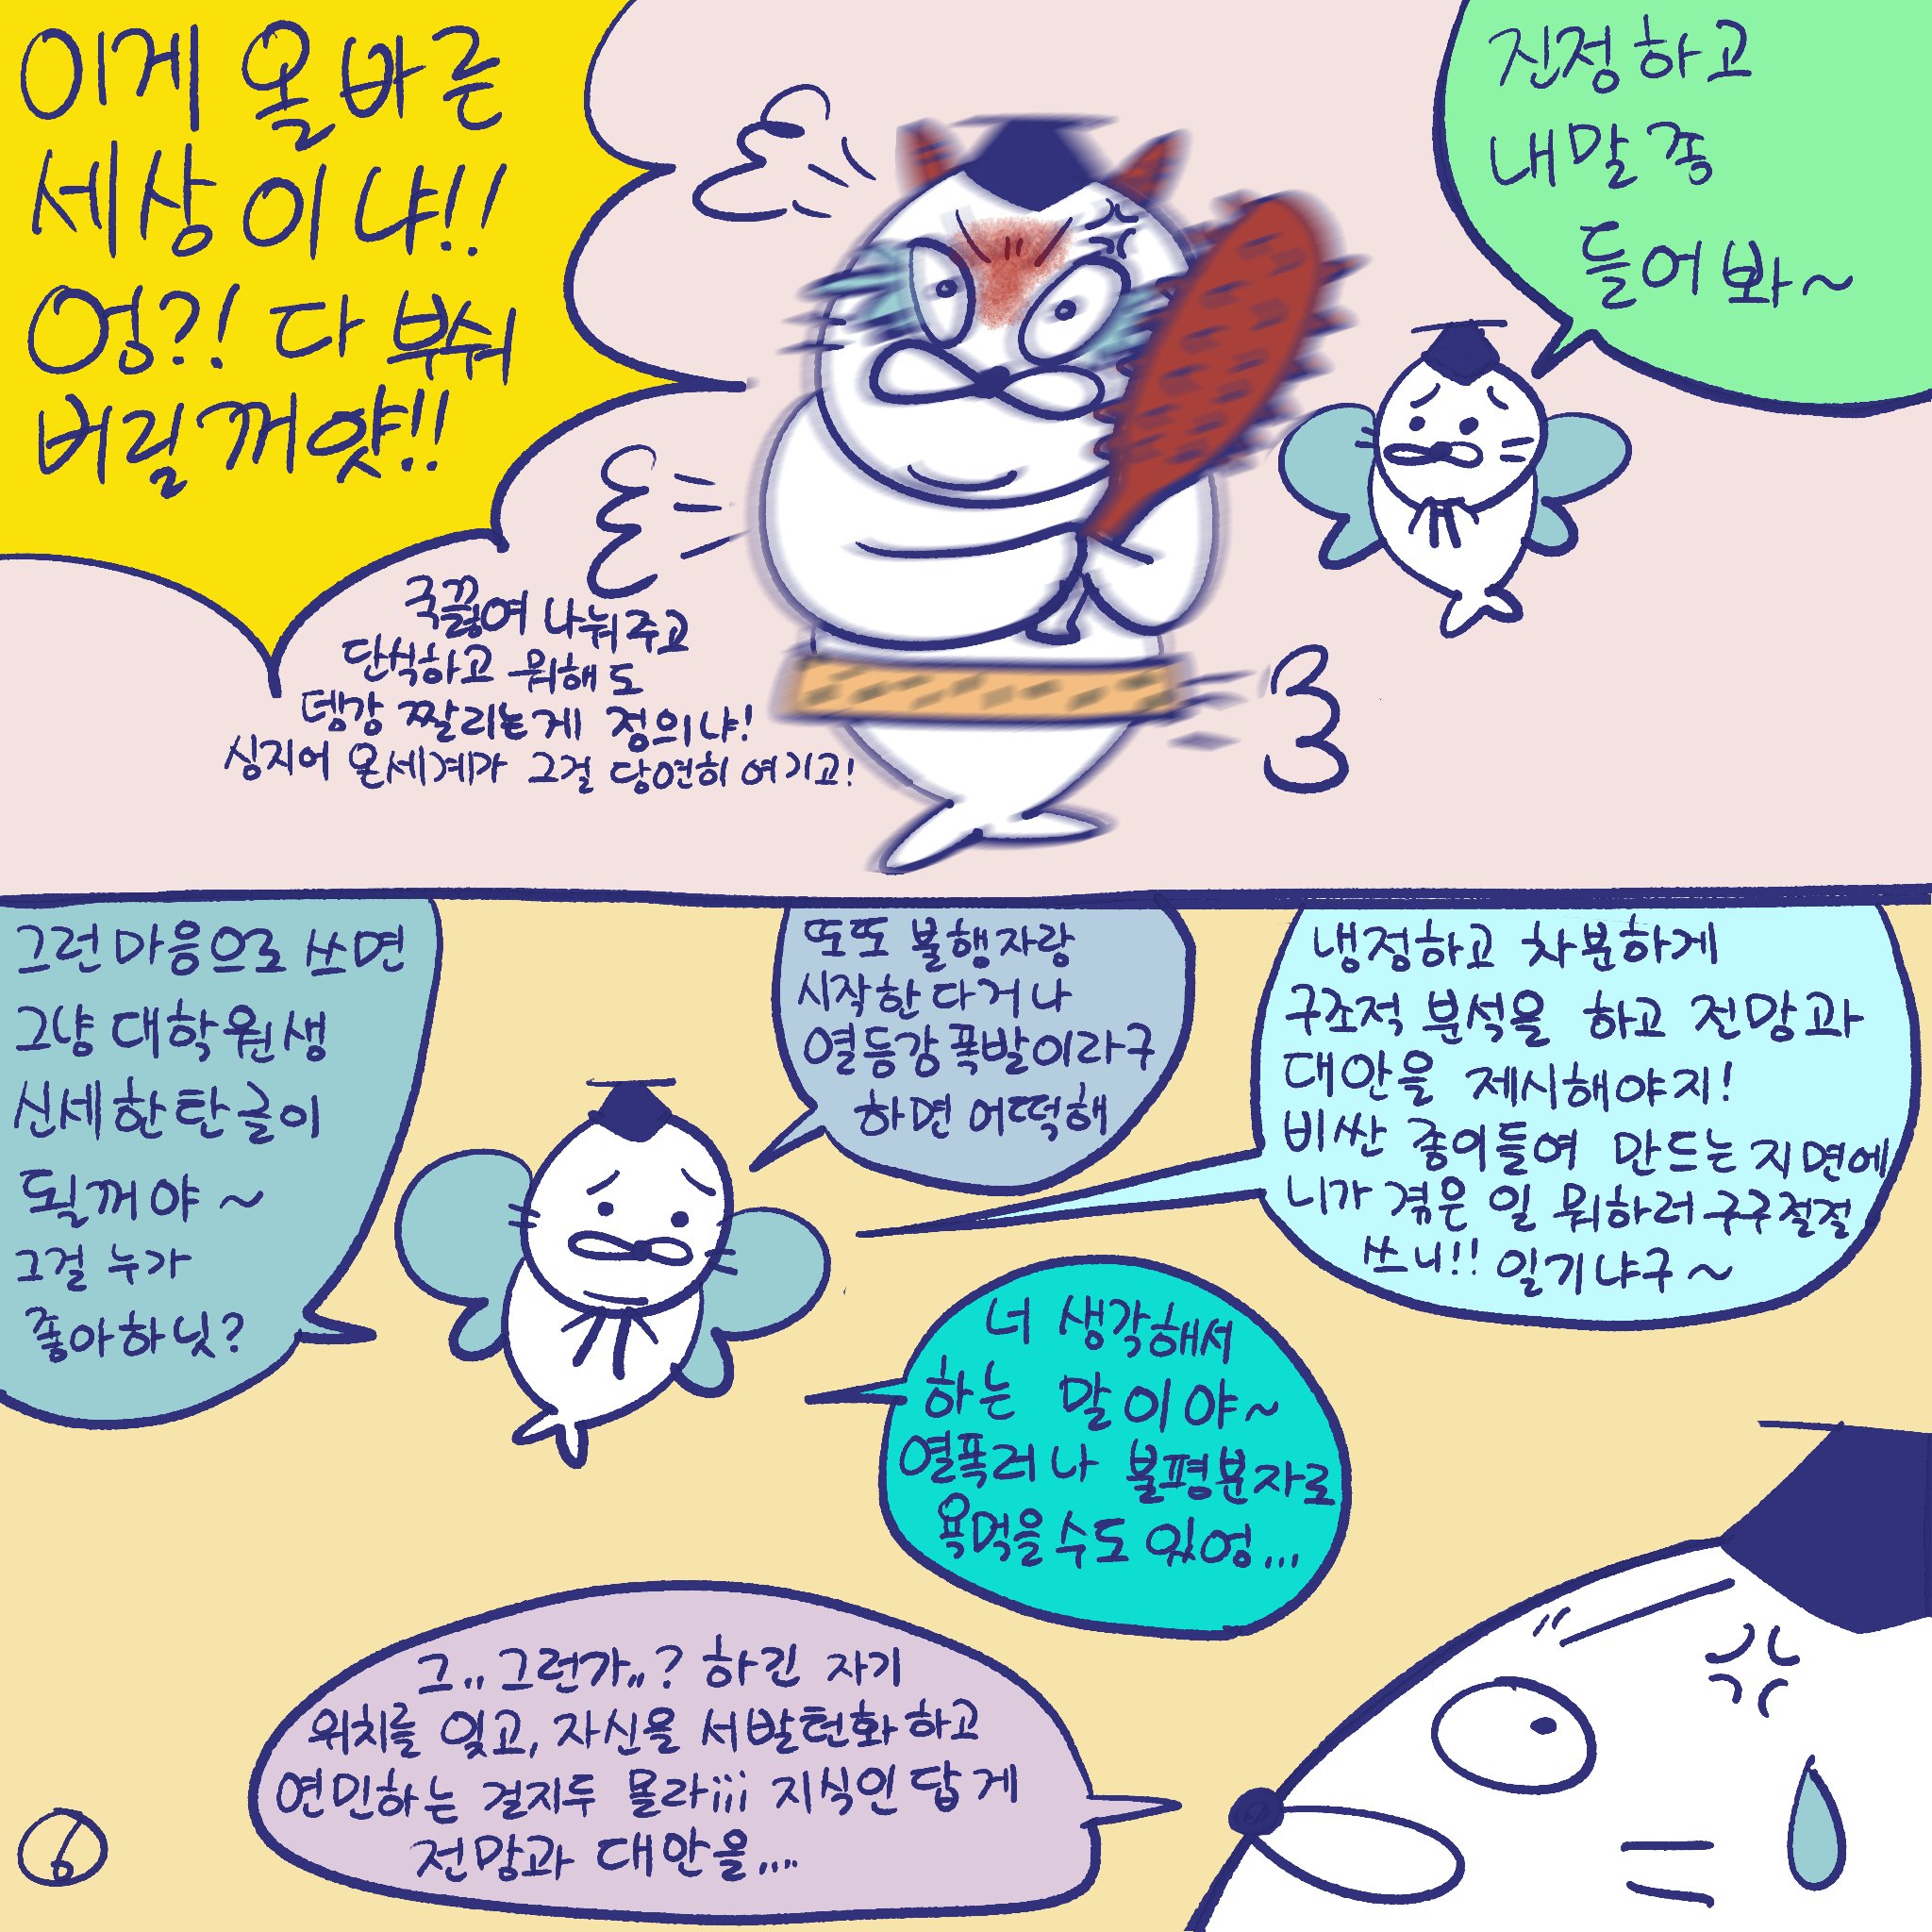 이게 올바른
세상이냐!!
엉?! 다 부숴
버릴꺼얏!!
진정하고
내말 좀
들어봐~
국끓여 나눠주고
단식하고 뭐해도
뎅강 짤리는게 정의냐!
심지어 온세계가 그걸 당연히 여기고!
그런마음으로 쓰면
그냥 대학원생
신세한탄글이
될꺼야~
그걸 누가
좋아하닛?
또또 불행자랑
시작한다거나
열등감폭발이라구
하면 어떡해
냉정하고 차분하게
구조적 분석을 하고 전망과
대안을 제시해야지!
비싼 종이들여 만드는 지면에
니가 겪은 일 뭐하러 구구절절
쓰니!! 일기냐구~
너 생각해서
하는 말이야~
열폭러나 불평분자로
욕먹을수도 있엉...
그..그런가..? 하긴 자기
위치를 잊고, 자신을 서발턴화하고
연민하는 걸지두 몰라iii 지식인답게
전망과 대안을....
6